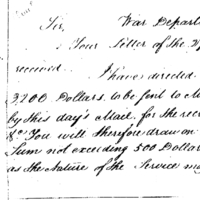 Sir, War Depart
Your Letter of the 2
received. I have directed
3,200 Dollars, to be sent to M
by this day's Mail, for the recr
&c. You will therefore draw on
Sum not exceeding 500 Dollar
as the Nature of the Service ma